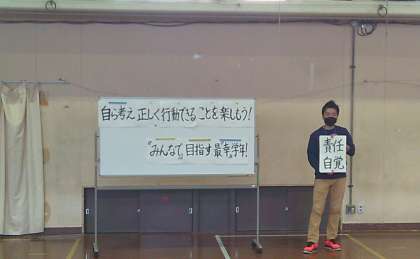 自ら考え 正しく行動できる ことを 楽しもう!
"みんなで" 目指す 最幸学年!
責任
自覚